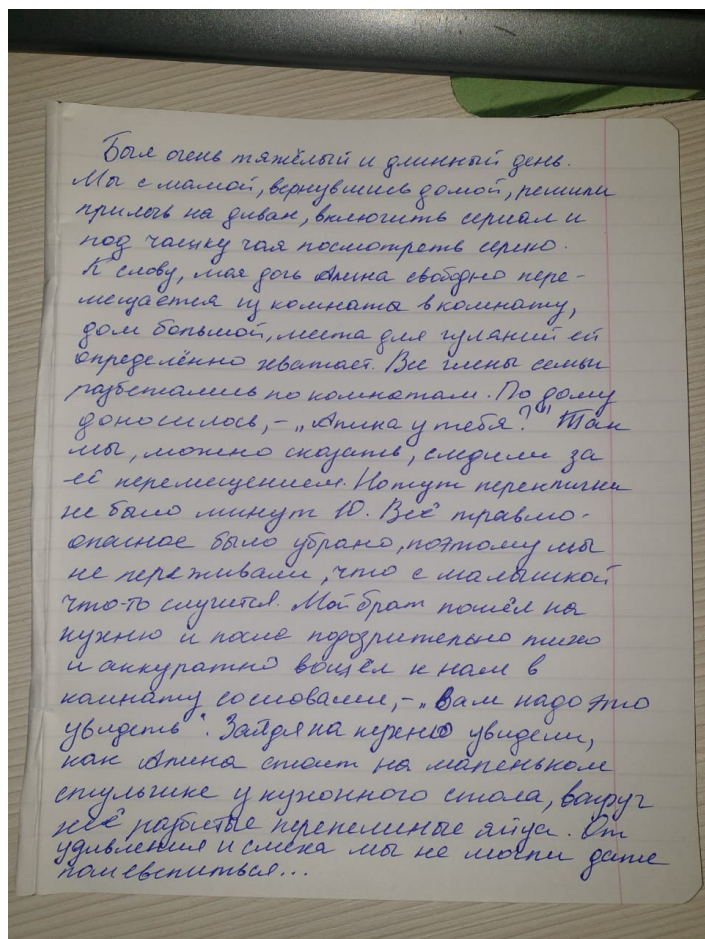 Был очень тяжёлый и длинный день.
Мы с мамой, вернувшись домой, решили
прилечь на диван, включить сериал и
под чашку чая посмотреть серию.
К слову, моя дочь Алина свободно пере-
мещается из комнаты в комнату,
дом большой, места для гуляний ей
определённо хватает. Все члены семьи
разбежались по комнатам. По дому
доносилось, – „Алина у тебя?" Так
мы, можно сказать, следили за
её перемещением. Но тут переклички
не было минут 10. Всё травмо-
опасное было убрано, поэтому мы
не переживали, что с малышкой
что-то случится. Мой брат пошёл на
кухню и после подозрительно тихо
и аккуратно вошёл к нам в
комнату со словами, – „Вам надо это
увидеть". Зайдя на кухню увидели,
как Алина стоит на маленьком
стульчике у кухонного стола, вокруг
неё разбитые перепелиные яйца. От
удивления и смеха мы не могли даже
пошевелиться...